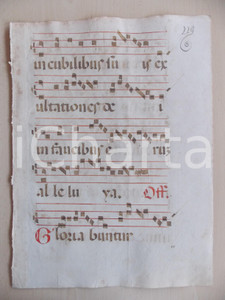 119
in cubilibus su is ex
ultationes de i
in faucibus e rus
al le lu ya. Off.
Gloria buntur
iCharta